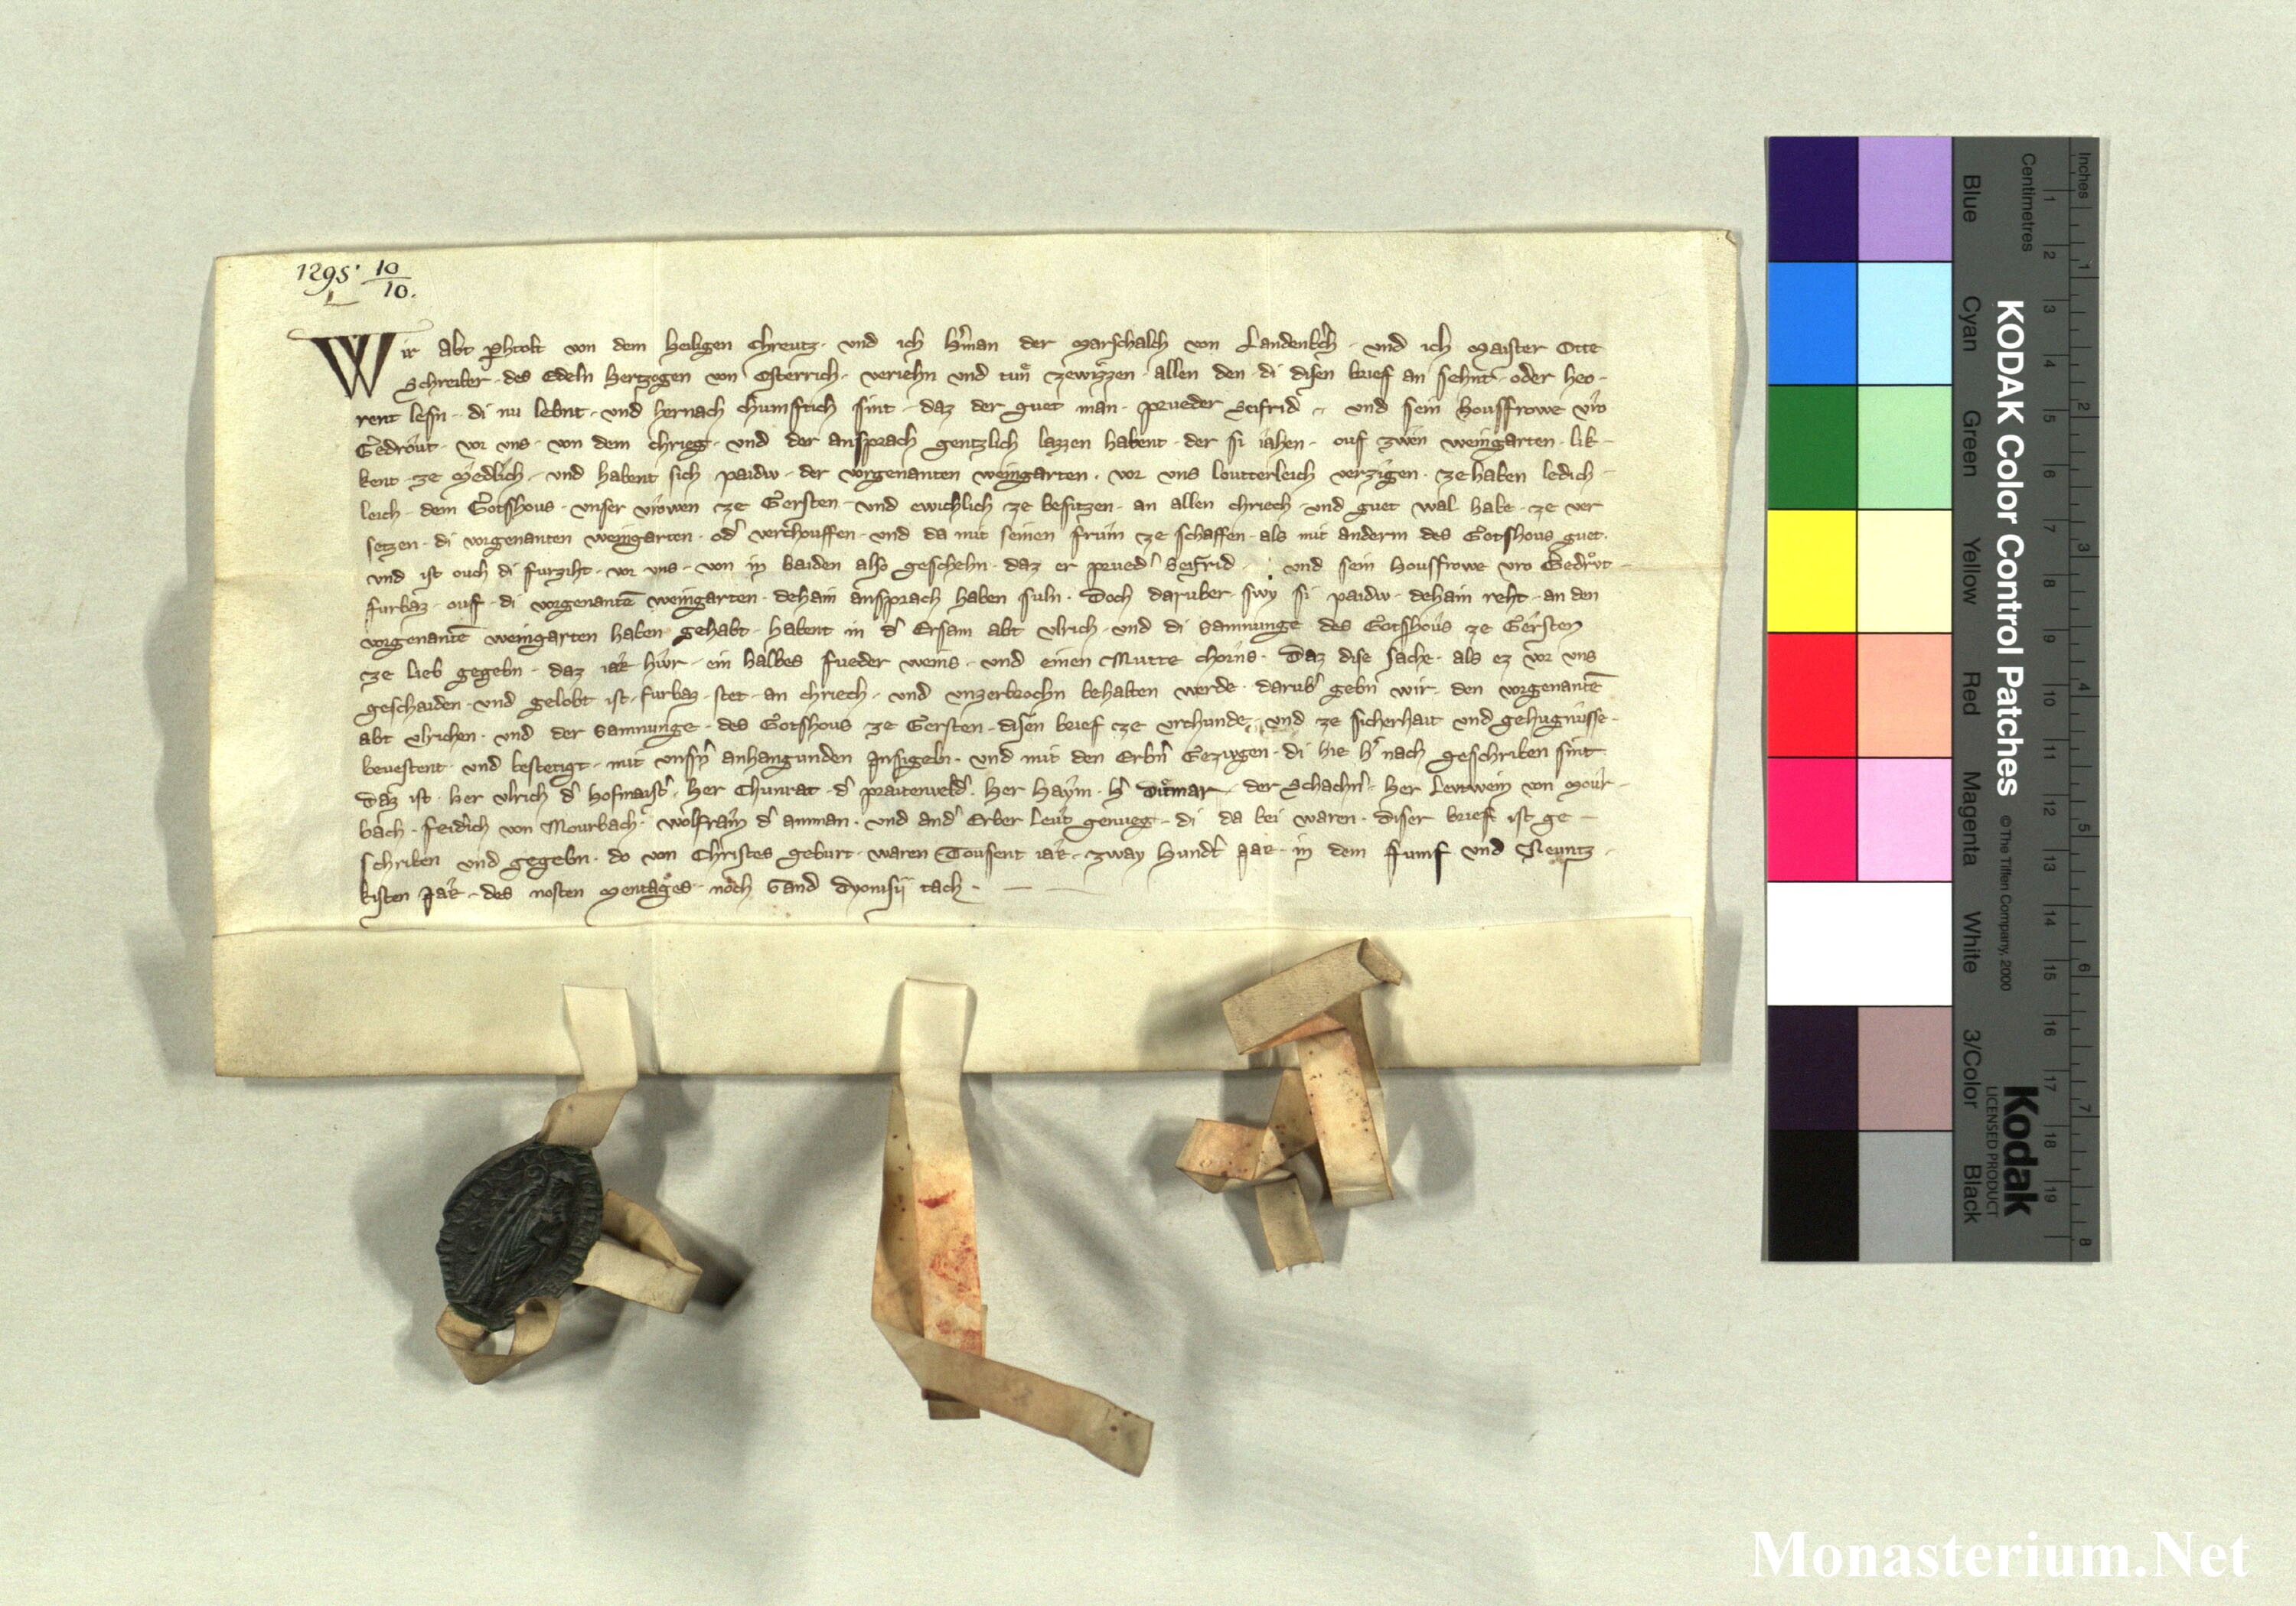 1295 10/10.
Wir abt perhtolt von dem heiligen Chreutz · und ich h'man der Marschalch von Landenb'ch · und ich Maister Otte
Schreiber · des Edeln hertzogen von Osterrich · veriehn und tun zewizzen · allen den · di disen brief an sehnt · oder heo-
rent lesn · di nu lebnt · und hernach chumftich sint · daz der guet man · prueder Seifrid · und sein housfrowe vro
Gedrout · vor uns · von dem chrieg · und der ansprach gentzlich lazzen habent · der si iahen · ouf zwen weingarten · lik-
kent · ze Medlich · und habent sich paidw · der vorgenanten weingarten · vor uns loutterleich verzigen · ze haben ledich-
leich · dem Gotshous · unser vrowen ze Gersten · und ewichlich ze besitzen · an allen chriech · und guet wal habe · ze ver
setzen · di vorgenanten weingarten · od' verchouffen · und da mit seinen frum ze schaffen · als mit anderm des Gotshous guet ·
und ist ouch di furziht · vor uns · von in baiden also geschehn · daz er prued' Seifrid · und sein housfrowe vro Gedrut
furbaz · ouf · di vorgenantē weingarten · dehain ansprach haben suln · Doch daruber · swy si paidw · dehain reht · an den
vorgenantē weingarten haben gehabt · habent in d' Ersam abt Ulrich · und di Samnunge des Gotshous ze Gersten
ze lieb gegebn · daz iar hiwr · ein halbes fueder weins · und einen Mutte chorns · Daz dise sache · als ez vor uns
geschaiden · und gelobt ist · furbaz · stet · an chriech · und unzerbrochn behalten werde · darub' gebn wir · den vorgenantē
abt Ulrichen · und der Samnunge · des Gotshous ze Gersten · disen brief ze urchunde · und ze sicherhait und gehugnusse ·
bevestent · und bestetigt · mit unsern anhangunden Insigeln · und mit den Erbn Gezivgen · di hie h' nach geschriben sint
Daz ist · her Ulrich d' hofmaist' · her Chunrat · d' praitenveld' · her Haym · h' Ditmar · der Schachn' · her Leutwein von Mour-
bach · Fridich von Mourbach · Wolfram d' amman · und and' Erber Leut genueg · di da bei waren · diser brief ist ge-
schriben und gegebn · do von Christes geburt · waren Tousent iar · zway hundt Jar · in dem fumf und Neuntz-
kisten Jar · des nosten Mentages · noch Sand Dyonisii tach ·
Inches
Centimetres
KODAK Color Control Patches
© The Tiffen Company, 2000
Kodak
LICENSED PRODUCT
Blue
Cyan
Green
Yellow
Red
Magenta
White
3/Color
Black
1 2 3 4 5 6 7 8 9 10 11 12 13 14 15 16 17 18 19
1 2 3 4 5 6 7 8
Monasterium.Net